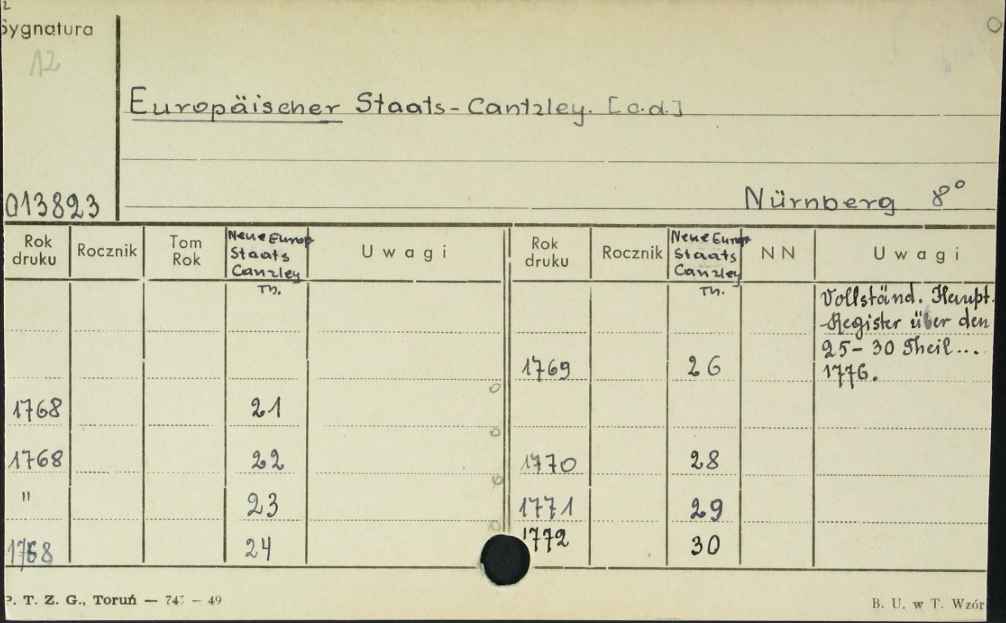 Sygnatura
12
Europäischer Staats-Cantzley. [c.d.]
013823
Nürnberg 8°
Rok druku Rocznik Tom Rok Neue Europ Staats Canzley Th. Uwagi Rok druku Rocznik Neue Europ Staats Canzley Th. NN Uwagi
Vollständ. Haupt-
Register über den
25-30 Theil...
1769 26 1776.
1768 21
1768 22 1770 28
" 23 1771 29
1768 24 1772 30
P. T. Z. G., Toruń — 74 — 49 B. U. w T. Wzór